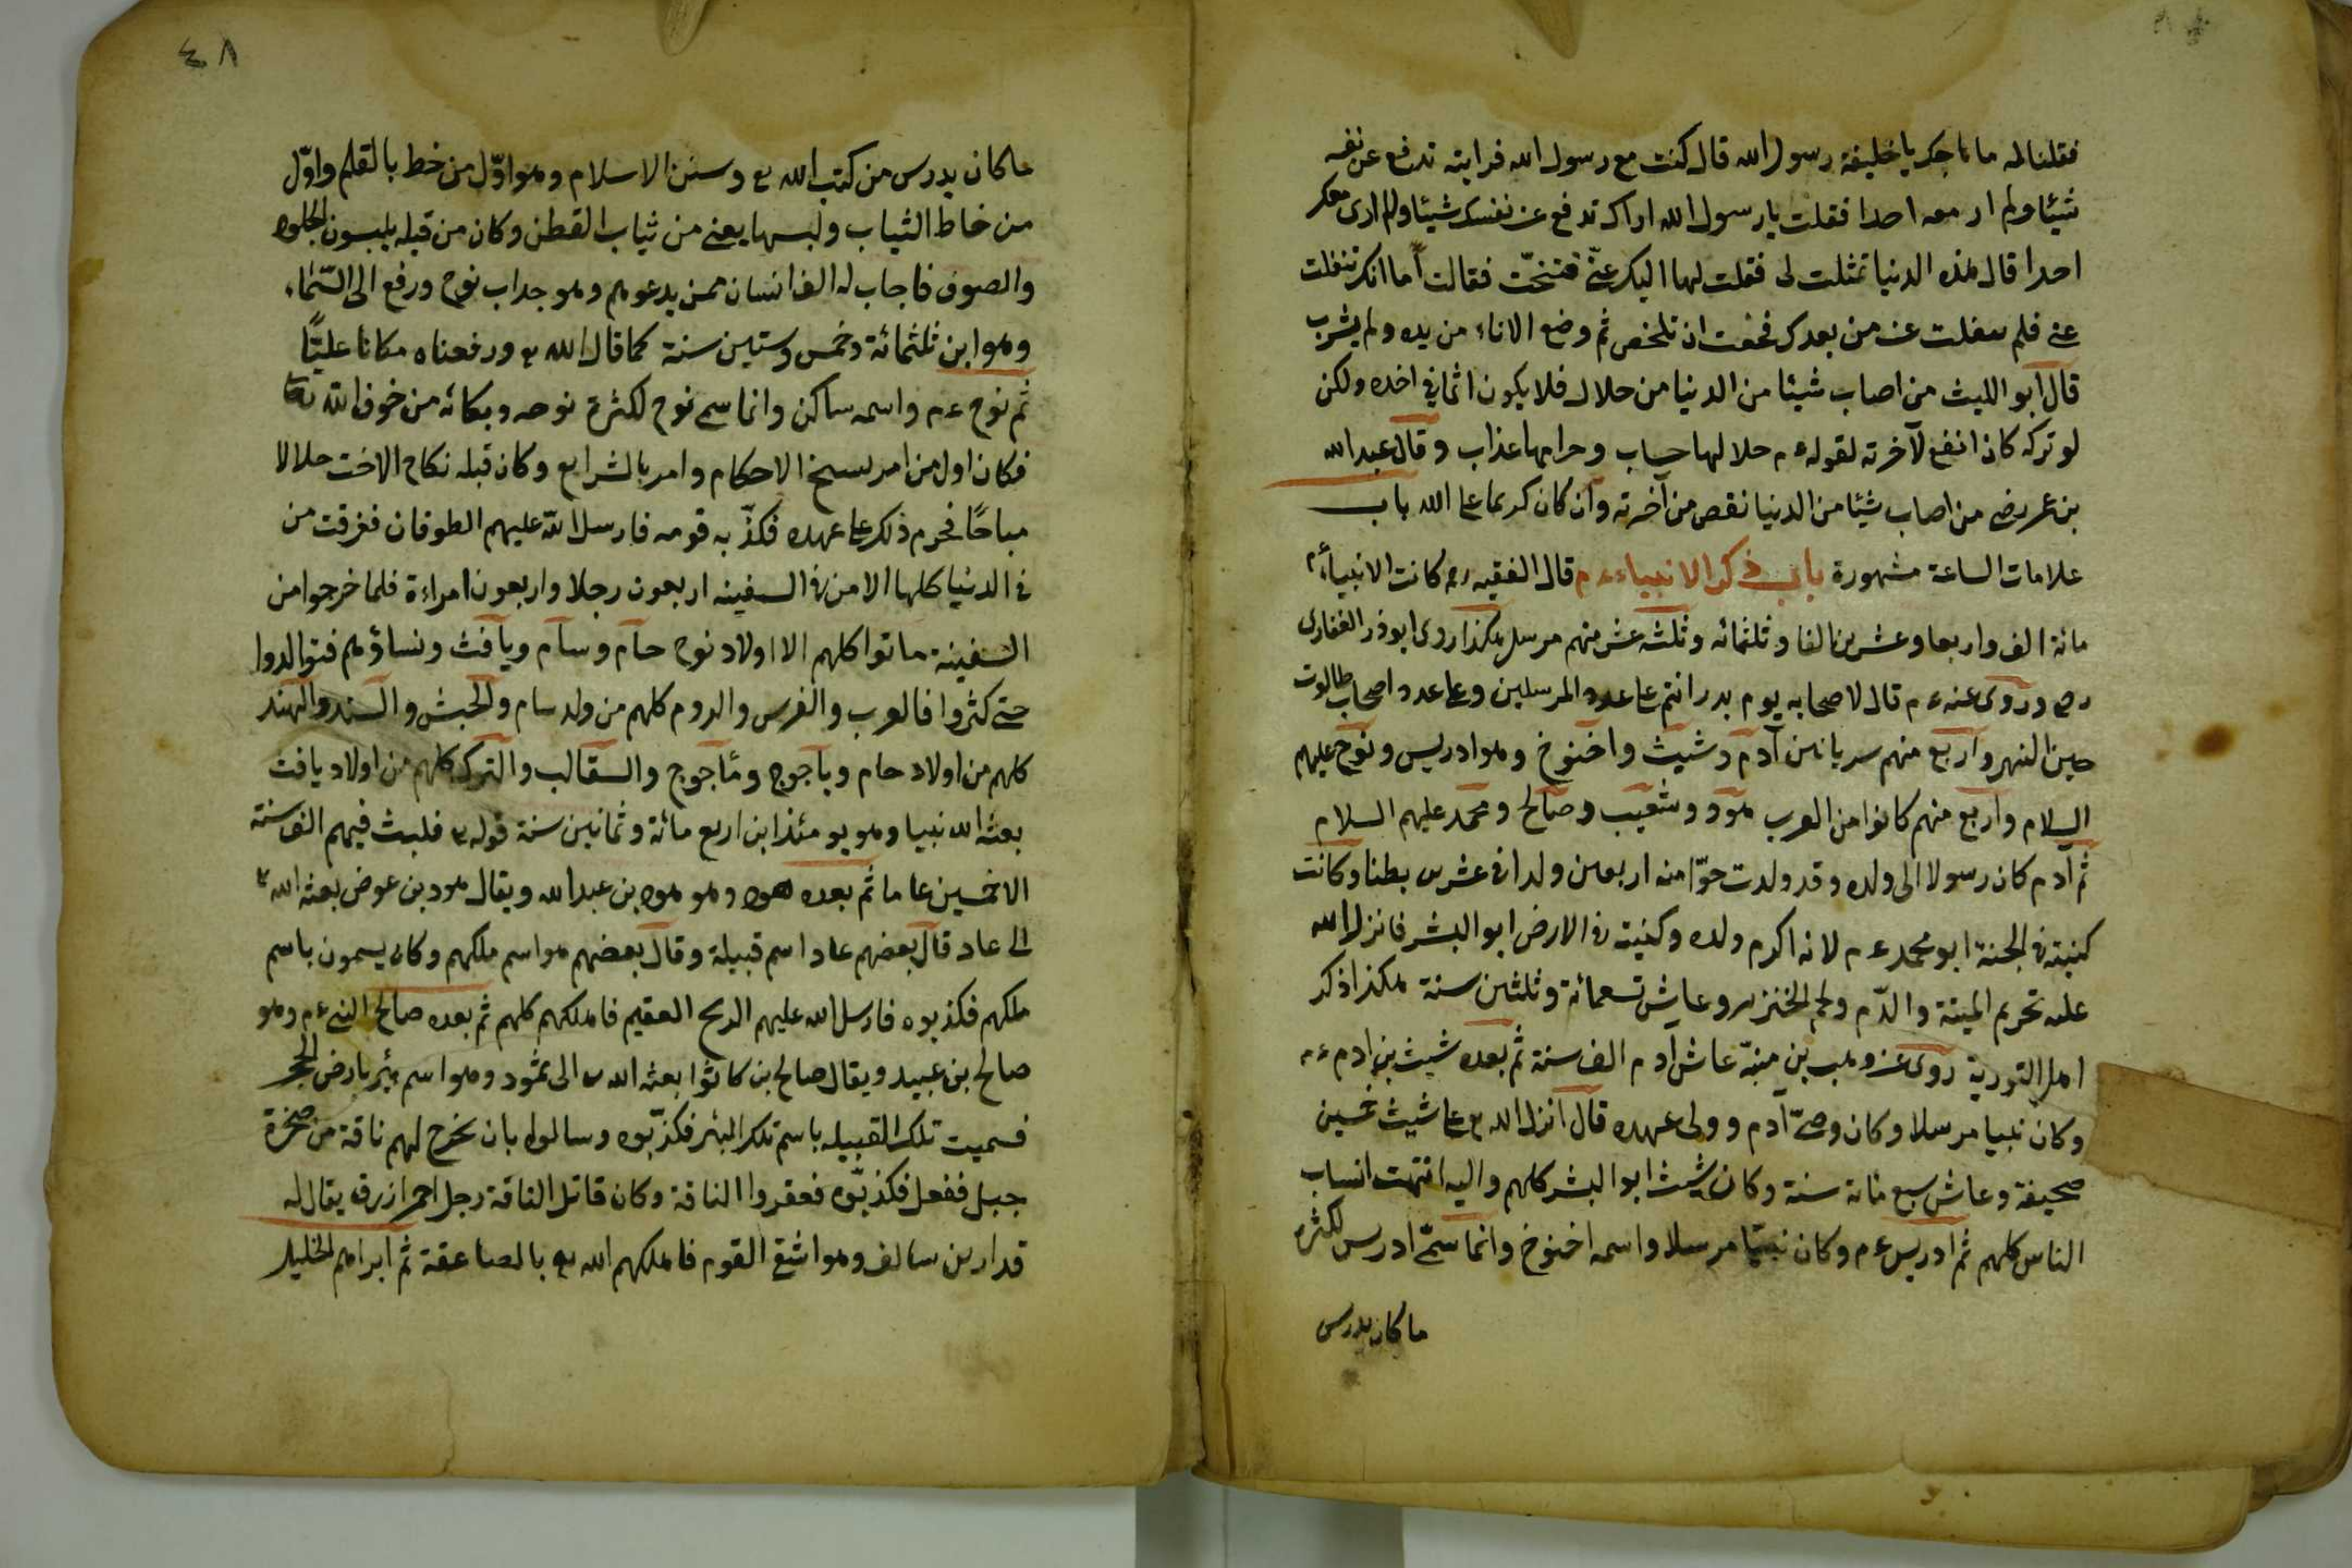 فقلنا له ما هاجك يا خليفة رسول الله قال كنت مع رسول الله فرايته تدفع عن نفسه
شيئا ولم ار معه احدا فقلت يا رسول الله اراك تدفع عن نفسك شيئا ولم ارى معك
احدا قال هذه الدنيا تمثلت لى فقلت لها اليك عنّى فتنحّت فقالت أما انك تنفلت
عنى فلم ينفلت عنى من بعدك فخفت ان تلخص ثم وضع الاناء من يده ولم يشرب
قال ابو الليث من اصاب شيئا من الدنيا من حلال فلا يكون اثما فى اخذه ولكن
لو تركه كان انفع لآخرته لقوله ءم حلالها حساب وحرامها عذاب وقال عبد الله
بن عمر رضى من اصاب شيئا من الدنيا نقص من آخرته وان كان كريما على الله باب
علامات الساعة مشهورة باب ذكر الانبياء ءم قال الفقيه رح كانت الانبياء ءم
مائة الف واربعا وعشرين الفا وثلثمائه وثلثه عشر منهم مرسل هكذا روى ابو ذر الغفارى
رض وروى عنه ءم قال لاصحابه يوم بدر انتم على عدد المرسلين وعلى عدد اصحاب طالوت
حين النهر واربع منهم سريانين آدم وشيث واخنوخ وهو ادريس ونوح عليهم
السلام واربع منهم كانوا من العرب هود وشعيب وصالح ومحمد عليهم السلام
ثم آدم كان رسولا الى ولده وقد ولدت حوّا منه اربعين ولدا فى عشرين بطنا وكانت
كنيته فى الجنة ابو محمد ءم لانه اكرم ولده وكنيته فى الارض ابو البشر فانزل الله
عليه تحريم الميتة والدّم ولحم الخنزير وعاش تسعمائة وثلثين سنة هكذا ذكر
اهل التورية روى عن وهب بن منبّه عاش آدم الف سنة ثم بعده شيث بن ادم ءم
وكان نبيا مرسلا وكان وصىّ آدم وولى عهده قال انزل الله تع على شيث خمسين
صحيفة وعاش سبع مائة سنة وكان شيث ابو البشر كلهم واليه انتهت انساب
الناس كلهم ثم ادريس ءم وكان نبيّا مرسلا واسمه اخنوخ وانما سمّى ادريس لكثرة
ما كان يدرس
٤٨
ما كان يدرس من كتب الله تع وسنن الاسلام وهو اوّل من خط بالقلم واوّل
من خاط الثياب ولبسها يعنى من ثياب القطن وكان من قبله يلبسون الجلود
والصوف فاجاب له الف انسان ممن يدعوهم وهو جد اب نوح ورفع الى السّماء
وهو ابن ثلثمائة وخمس وستين سنة كما قال الله تع ورفعناه مكانا عليّا
ثم نوح ءم واسمه ساكن وانما سمى نوح لكثرة نوحه وبكائه من خوف الله تعا
فكان اول من امر بنسخ الاحكام وامر بالشرايع وكان قبله نكاح الاخت حلالا
مباحًا فحرم ذلك على عهده فكذّبه قومه فارسل الله عليهم الطوفان فغرقت من
فى الدنيا كلها الا من فى السفينه اربعون رجلا واربعون امراءة فلما خرجوا من
السفينة ماتوا كلهم الا اولاد نوح حام وسام ويافث ونساؤهم فتوالدوا
حتى كثروا فالعرب والفرس والروم كلهم من ولد سام والحبش والسند والهند
كلهم من اولاد حام وياجوج ومأجوج والسقالب والترك كلهم من اولاد يافث
بعثه الله نبيا وهو يومئذ ابن اربع مائة وثمانين سنة قوله تع فلبث فيهم الف سنة
الا خمسين عاما ثم بعده هود وهو هود بن عبد الله ويقال هود بن عوض بعثه الله تع
الى عاد قال بعضهم عاد اسم قبيلة وقال بعضهم هو اسم ملكهم وكان يسمون باسم
ملكهم فكذبوه فارسل الله عليهم الريح العقيم فاهلكهم كلهم ثم بعده صالح النبى ءم وهو
صالح بن عبيد ويقال صالح بن كاثوا بعثه الله تع الى ثمود وهو اسم بئر بارض الحجر
فسميت تلك القبيله باسم تلك البئر فكذّبوه وسالوا بان يخرج لهم ناقة من صخرة
جبل ففعل فكذّبوه فعقروا الناقة وكان قاتل الناقة رجل احمر ازرق يقال له
قدار بن سالف وهو اشقى القوم فاهلكهم الله تع بالصاعقة ثم ابراهيم الخليل